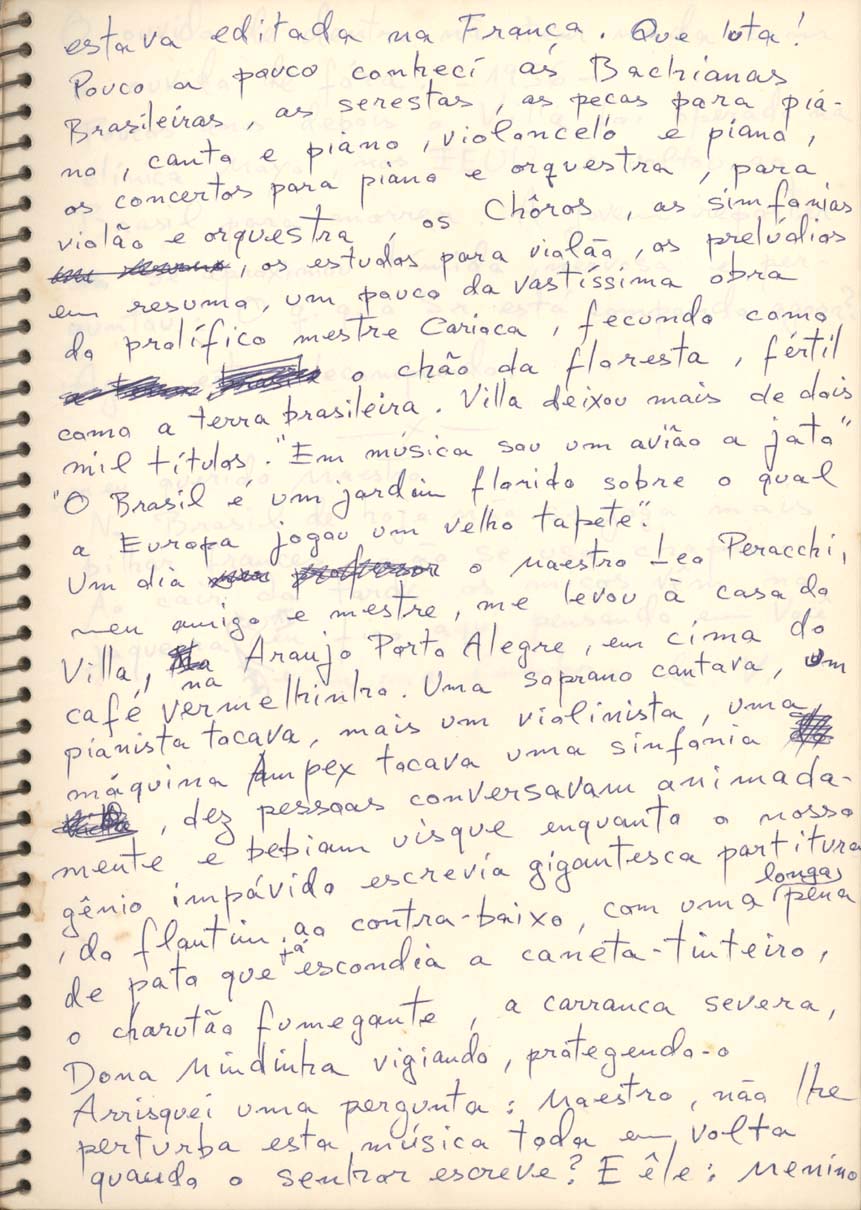 estava editada na França. Que luta!
Pouco a pouco conhecí as Bachianas
Brasileiras, as serestas, as peças para piá-
no, canto e piano, violoncelo e piano,
os concertos para piano e orquestra, para
violão e orquestra, os Chôros, as simfonias
, os estudos para violão, os prelúdios
em resumo, um pouco da vastíssima obra
do prolífico mestre Carioca, fecundo como
o chão da floresta, fértil
como a terra brasileira. Villa deixou mais de dois
mil títulos. "Em música sou um avião a jato"
"O Brasil é um jardim florido sobre o qual
a Europa jogou um velho tapete".
Um dia o maestro Leo Peracchi,
meu amigo e mestre, me levou à casa do
Villa, na Araujo Porto Alegre, em cima do
café vermelhinho. Uma soprano cantava, um
pianista tocava, mais um violinista, uma
máquina Ampex tocava uma sinfonia
, dez pessoas conversavam animada-
mente e bebiam uisque enquanto o nosso
gênio impávido escrevia gigantesca partitura
, do flautim ao contra-baixo, com uma longa pena
de pato que tá escondia a caneta-tinteiro,
o charutão fumegante, a carranca severa,
Dona Mindinha vigiando, protegendo-o
Arrisquei uma pergunta: Maestro, não lhe
perturba esta música toda em volta
quando o senhor escreve? E êle: Menino